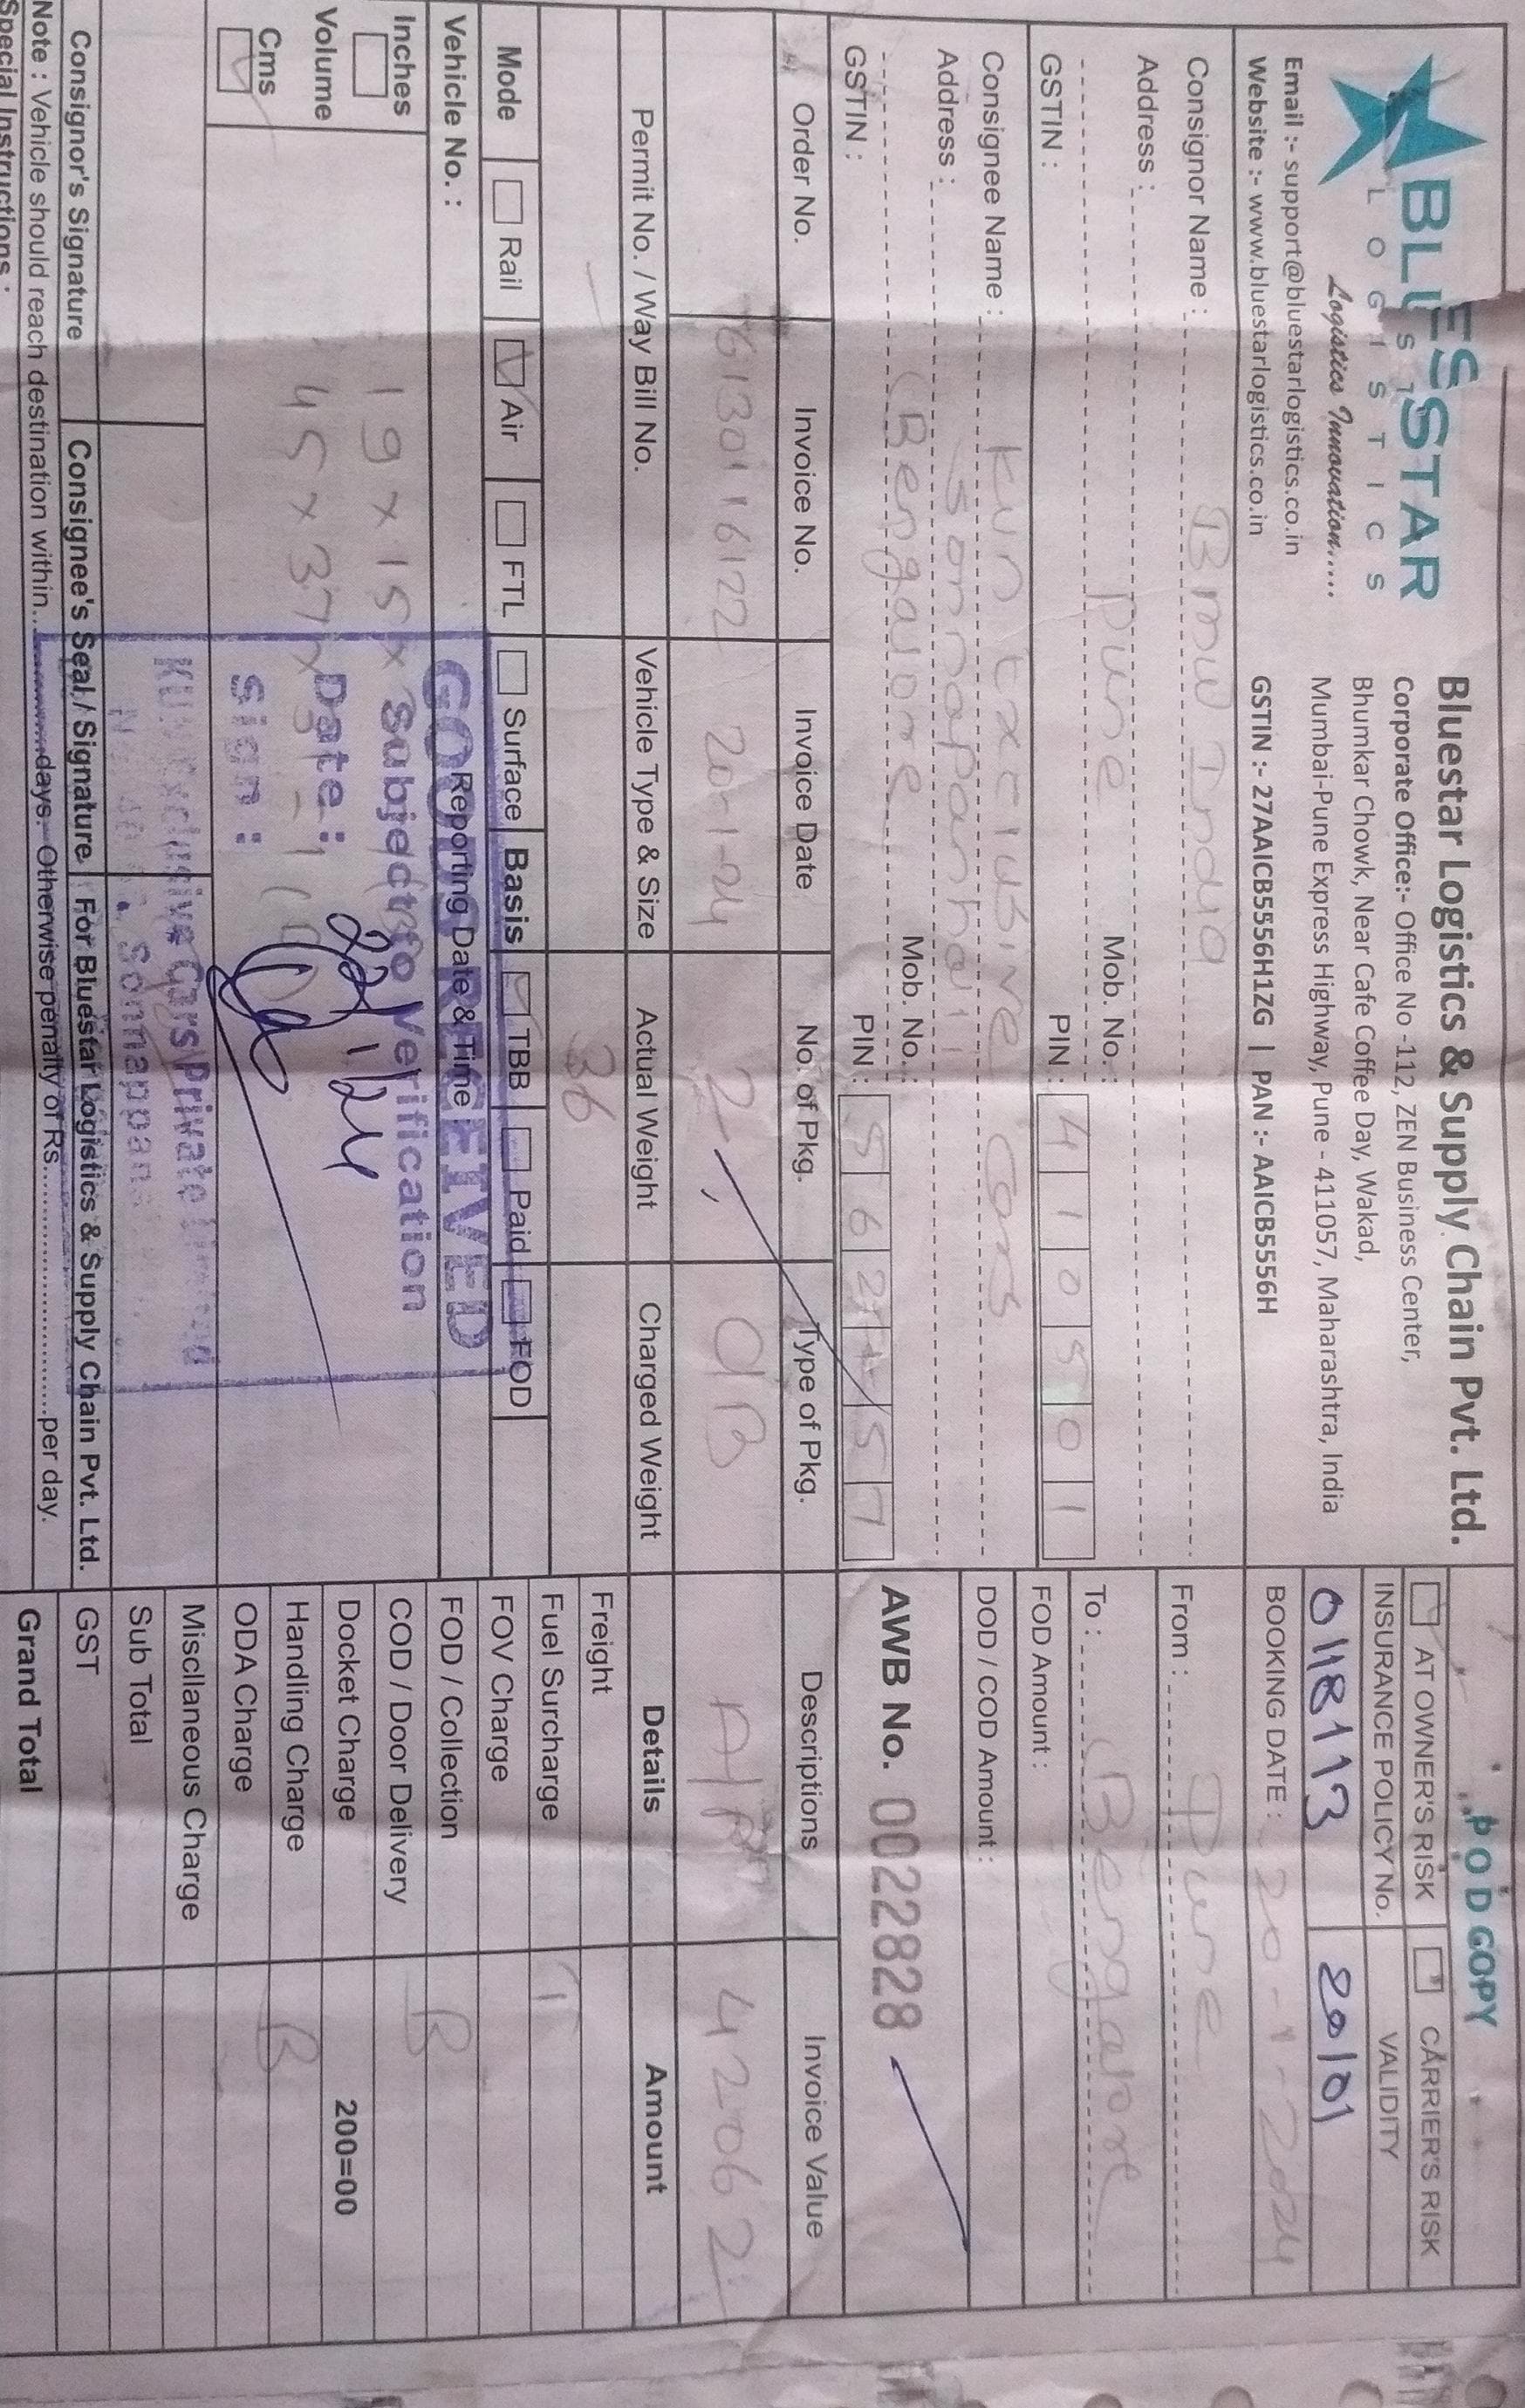 BLUESTAR
LOGISTICS
Logistics Innovation.....
Email :- support@bluestarlogistics.co.in
Website :- www.bluestarlogistics.co.in
Bluestar Logistics & Supply Chain Pvt. Ltd.
Corporate Office:- Office No -112, ZEN Business Center,
Bhumkar Chowk, Near Cafe Coffee Day, Wakad,
Mumbai-Pune Express Highway, Pune - 411057, Maharashtra, India
GSTIN :- 27AAICB5556H1ZG | PAN :- AAICB5556H
POD COPY
AT OWNER'S RISK CARRIER'S RISK
INSURANCE POLICY No. VALIDITY
0118113 20/01
BOOKING DATE : 20-1-2024
Consignor Name : BMW India
Address :
Pune Mob. No. :
GSTIN : PIN : 410501
From : Pune
To : Bengalore
FOD Amount :
DOD / COD Amount :
Consignee Name : KUN Exclusive Cars
Address : Sonnapanhalli
Bengalore Mob. No. :
GSTIN : PIN : 562157
AWB No. 0022828
Order No. Invoice No. Invoice Date No. of Pkg. Type of Pkg. Descriptions Invoice Value
6130116122 20-1-24 2 CIB A/P 42062
Permit No. / Way Bill No. Vehicle Type & Size Actual Weight Charged Weight Details Amount
36
Mode Rail Air FTL Surface Basis TBB Paid FOD
Vehicle No. : Reporting Date & Time
Inches
Volume
Cms
19 x 15 x
45 x 37 x 31 - 1
GOODS RECEIVED
Subject to Verification
Date : 22/1/24
Sign :
KUN Exclusive Cars Private Limited
Freight
Fuel Surcharge T
FOV Charge
FOD / Collection B
COD / Door Delivery
Docket Charge 200=00
Handling Charge B
ODA Charge
Miscllaneous Charge
Sub Total
GST
Grand Total
Consignor's Signature Consignee's Seal / Signature For Bluestar Logistics & Supply Chain Pvt. Ltd.
Note : Vehicle should reach destination within..................days. Otherwise penalty of Rs.............................per day.
Special Instructions :